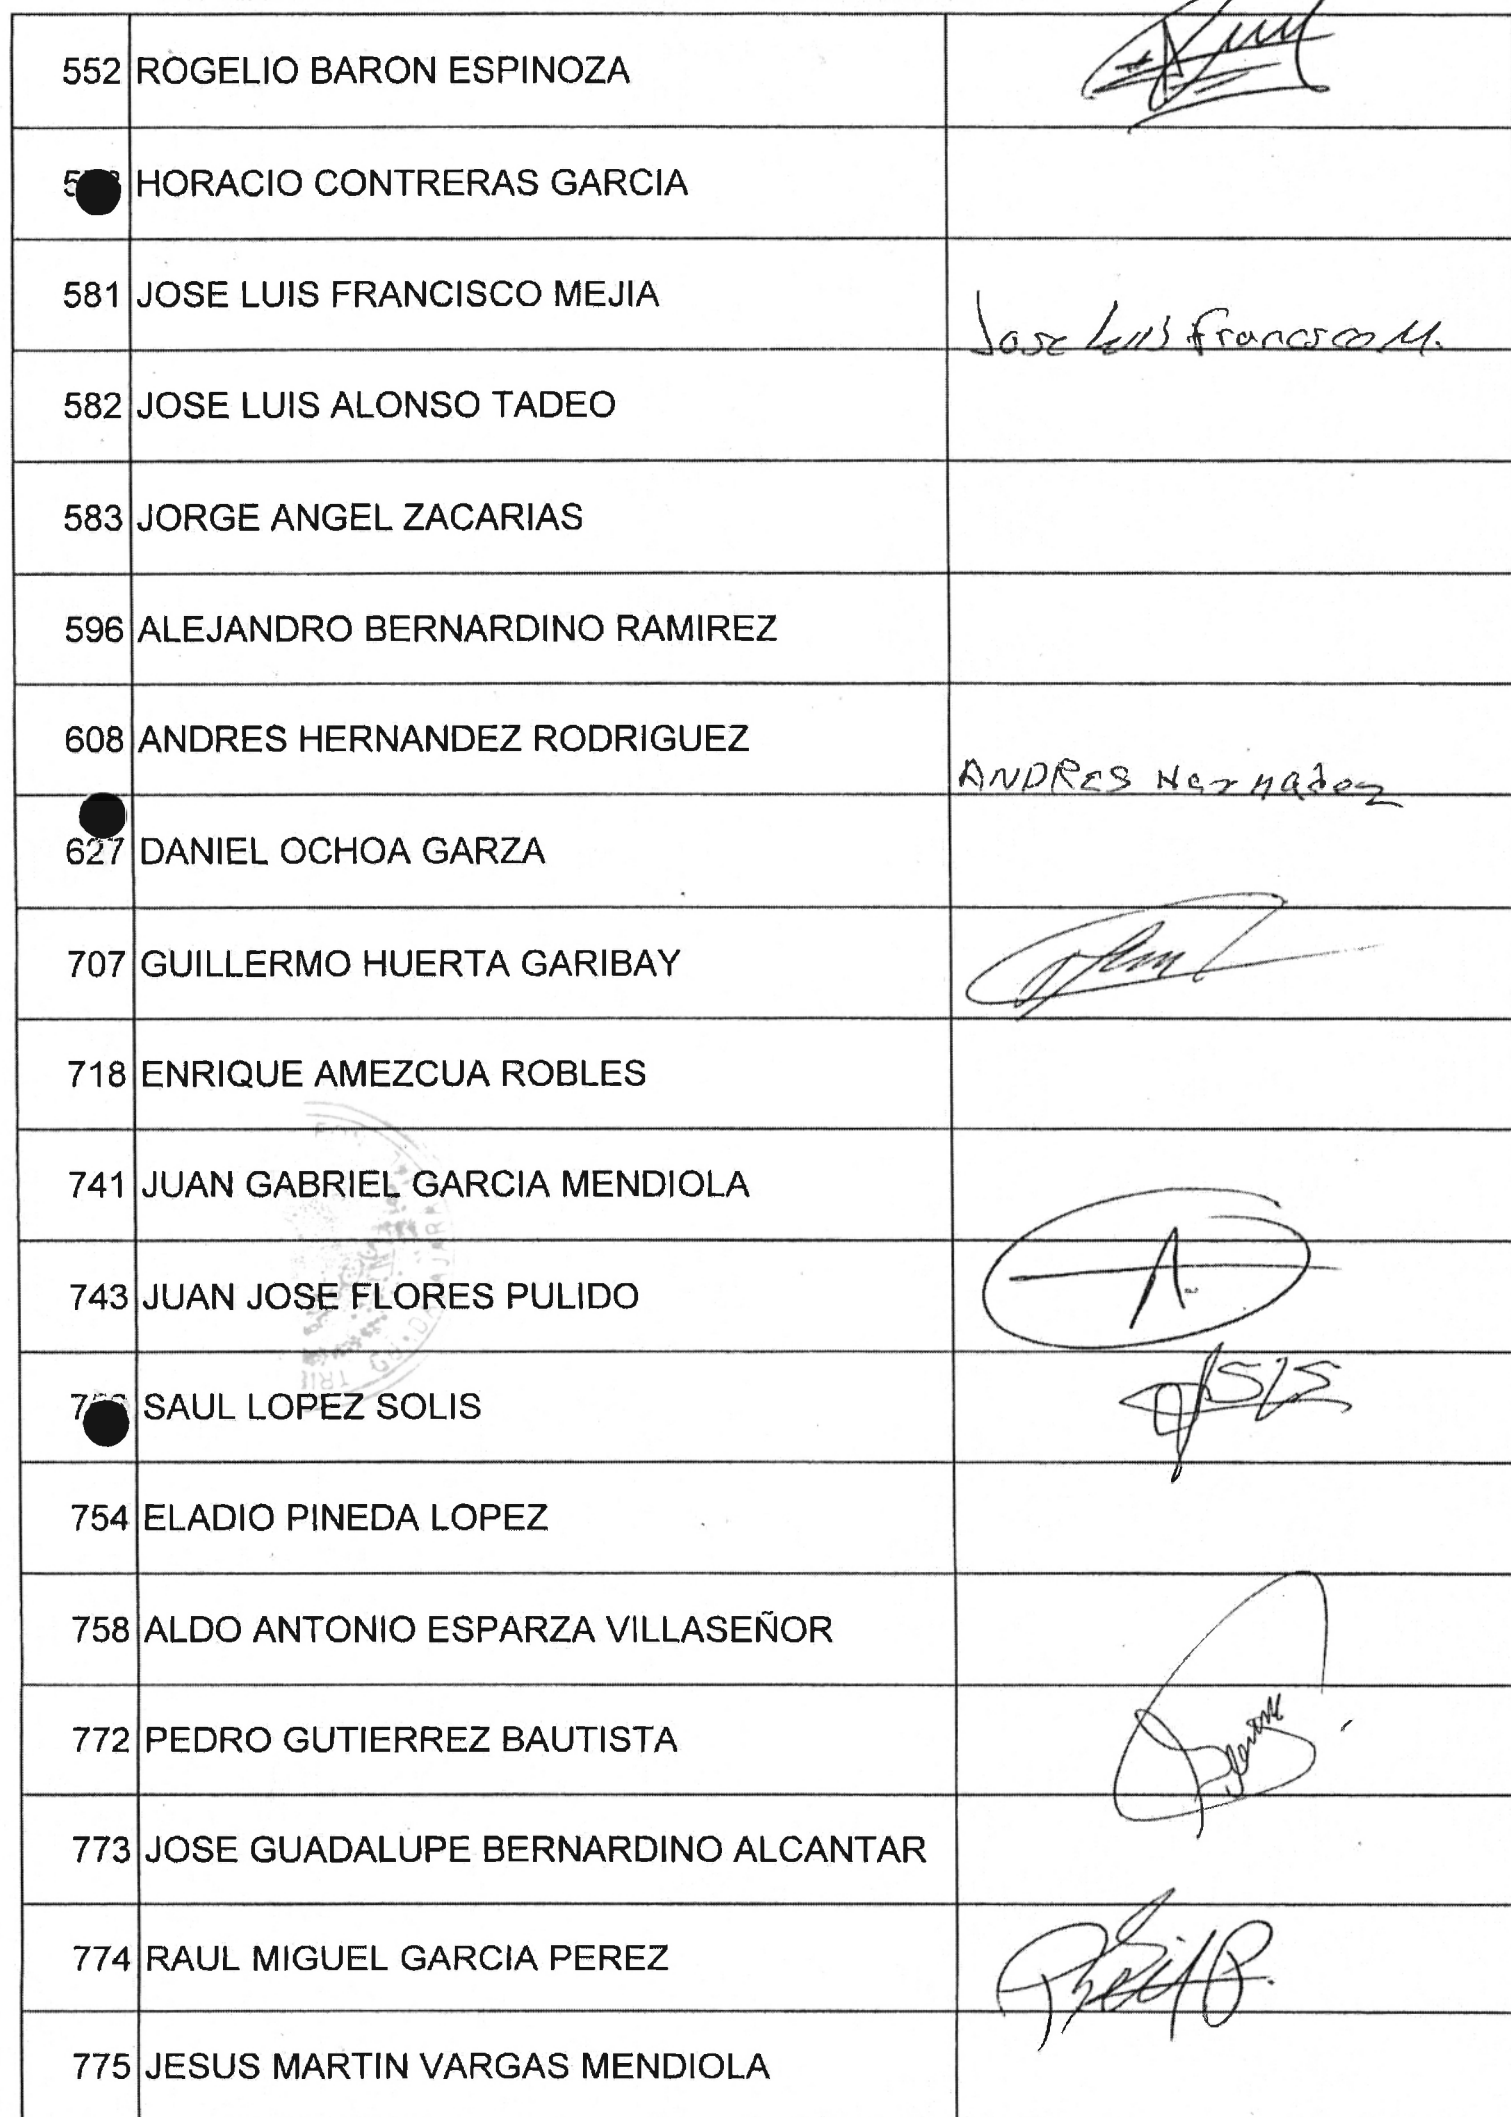 552 ROGELIO BARON ESPINOZA
HORACIO CONTRERAS GARCIA
581 JOSE LUIS FRANCISCO MEJIA
Jose Luis Francisco M.
582 JOSE LUIS ALONSO TADEO
583 JORGE ANGEL ZACARIAS
596 ALEJANDRO BERNARDINO RAMIREZ
608 ANDRES HERNANDEZ RODRIGUEZ
ANDRES
627 DANIEL OCHOA GARZA
707 GUILLERMO HUERTA GARIBAY
718 ENRIQUE AMEZCUA ROBLES
741 JUAN GABRIEL GARCIA MENDIOLA
743 JUAN JOSE FLORES PULIDO
SAUL LOPEZ SOLIS
754 ELADIO PINEDA LOPEZ
758 ALDO ANTONIO ESPARZA VILLASEÑOR
772 PEDRO GUTIERREZ BAUTISTA
773 JOSE GUADALUPE BERNARDINO ALCANTAR
774 RAUL MIGUEL GARCIA PEREZ
775 JESUS MARTIN VARGAS MENDIOLA